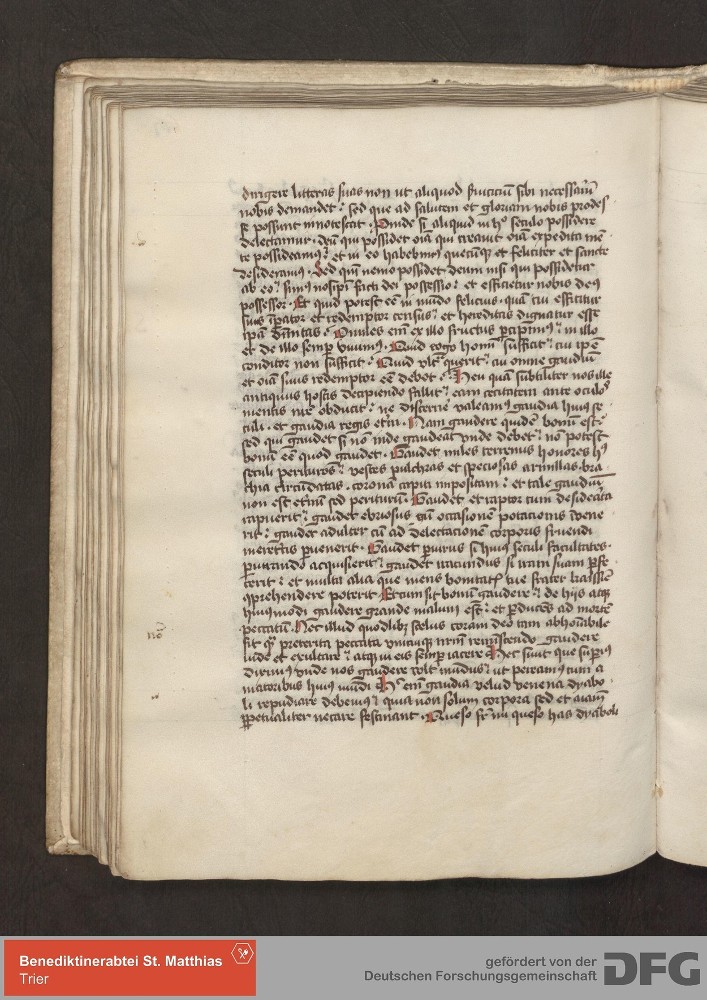 dirigere litteras suas non ut aliquod seruiciu sibi necessariu
nobis demandet : sed que ad salutem et gloriam nobis prodes
se possunt innotescat . Proinde si aliquid in hoc seculo possidere
delectamur . deu qui possidet oia qui creauit oia expedita men
te possideamus : et in eo habebimus quecuq et feliciter et sancte
desideramus . Sed qm nemo possidet deum nisi qui possidetur
ab eo : simus nosipi facti dei possessio : et efficietur nobis deus
possessor . Et quid potest ee in mundo felicius . qua cui efficitur
suus imperator et redemptor census : et hereditas dignatur esse
ipa diuinitas : em ex illo fructus percipimus : in illo
et de illo semper viuimus . Quid rogo homini sufficit : cui ipe
conditor non sufficit : Quid vltra querit : cui omne gaudiu
et oia suus redemptor ee debet : Heu qua subtiliter nos ille
antiquus hostis decipiendo fallit : eam cecitatem ante oculos
mentis nre obducit : ne discernere valeamus gaudia huius se
culi . et gaudia regis eterni . Nam gaudere quidem bonu est :
sed qui gaudet si no inde gaudeat vnde debet : no potest
bonu ee quod gaudet . Gaudet miles terrenus honores huius
seculi perituros : vestes pulchras et speciosas armillas bra
chia circundatas . corona capiti impositam : et tale gaudiu
non est eternu sed periturum . Gaudet et raptor cum desiderata
rapuerit : gaudet ebriosus cu occasionem potacionis inuene
rit : gaudet adulter cu ad delectacionem corporis fruendi
meretricis peruenerit . Gaudet periurus si huius seculi facultates
periurando acquisierit : gaudet iracundus si iram suam perfe
cerit : et multa alia que mens bonitatis tue frater karissime
comprehendere poterit . Et cum sit bonum gaudere : de hijs atq
huiusmodi gaudere grande malum est : et perducens ad morte
peccatum . Nec illud quodlibet scelus coram deo tam abhominabile
sit quam preterita peccata vnicuiq nrm reminiscendo gaudere
inde et exultare : atq in eis semper iacere . Hec sunt que superius
diximus vnde nos gaudere vult mundus : ut pereamus cum a
matoribus huius mundi . em gaudia velud venena dyabo
li repudiare debemus : quia non solum corpora sed et animam
perpetualiter necare festinant . Queso fr mi queso has dyaboli
Benediktinerabtei St. Matthias
Trier
gefördert von der
Deutschen Forschungsgemeinschaft
DFG